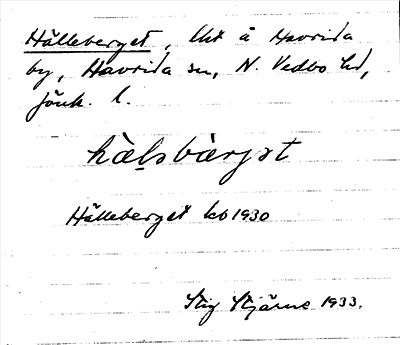 Hälleberget, lht å Haurida
by, Haurida sn, N. Vedbo hd,
Jönk. l.
hàl̥sbàrjət
Hälleberget kb 1930
Stig Stjärne 1933.